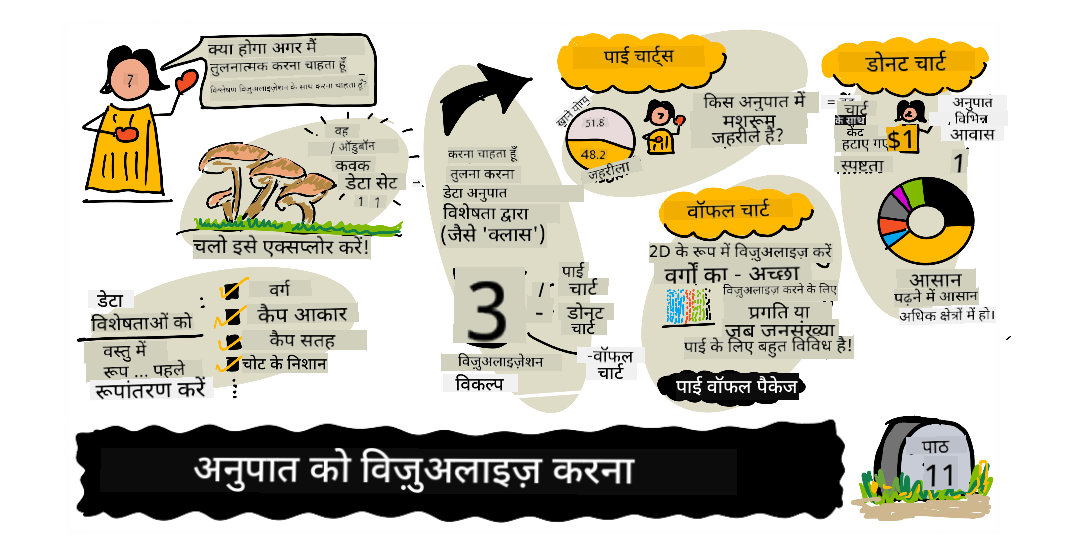 क्या होगा अगर मैं
तुलनात्मक करना चाहता हूँ
विश्लेषण विज़ुअलाइज़ेशन के साथ करना चाहता हूँ?
वह
/ ऑडुबॉन
कवक
डेटा सेट
1 1
चलो इसे एक्सप्लोर करें!
डेटा
विशेषताओं को
वस्तु में
रूप ... पहले
रूपांतरण करें
वर्ग
कैप आकार
कैप सतह
चोट के निशान
करना चाहता हूँ
तुलना करना
डेटा अनुपात
विशेषता द्वारा
(जैसे 'क्लास')
3
विज़ुअलाइज़ेशन
विकल्प
/ पाई
चार्ट
- डोनट
चार्ट
-वॉफल
चार्ट
पाई चार्ट्स
खाने योग्य
51.8
48.2
जहरीला
किस अनुपात में
मशरूम
जहरीले हैं?
वॉफल चार्ट
2D के रूप में विज़ुअलाइज़ करें
वर्गों का - अच्छा
विज़ुअलाइज़ करने के लिए
प्रगति या
जब जनसंख्या
पाई के लिए बहुत विविध है!
पाई वॉफल पैकेज
डोनट चार्ट
चार्ट
के साथ
केंद्र
हटाए गए
स्पष्टता
$1
अनुपात
, विभिन्न
आवास
1
आसान
पढ़ने में आसान
अधिक क्षेत्रों में हो।
अनुपात को विज़ुअलाइज़ करना
पाठ
11